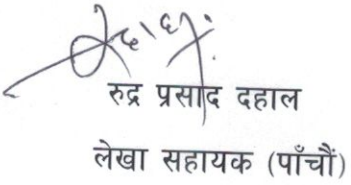 रुद्र प्रसाद दहाल
लेखा सहायक (पाँचौं)